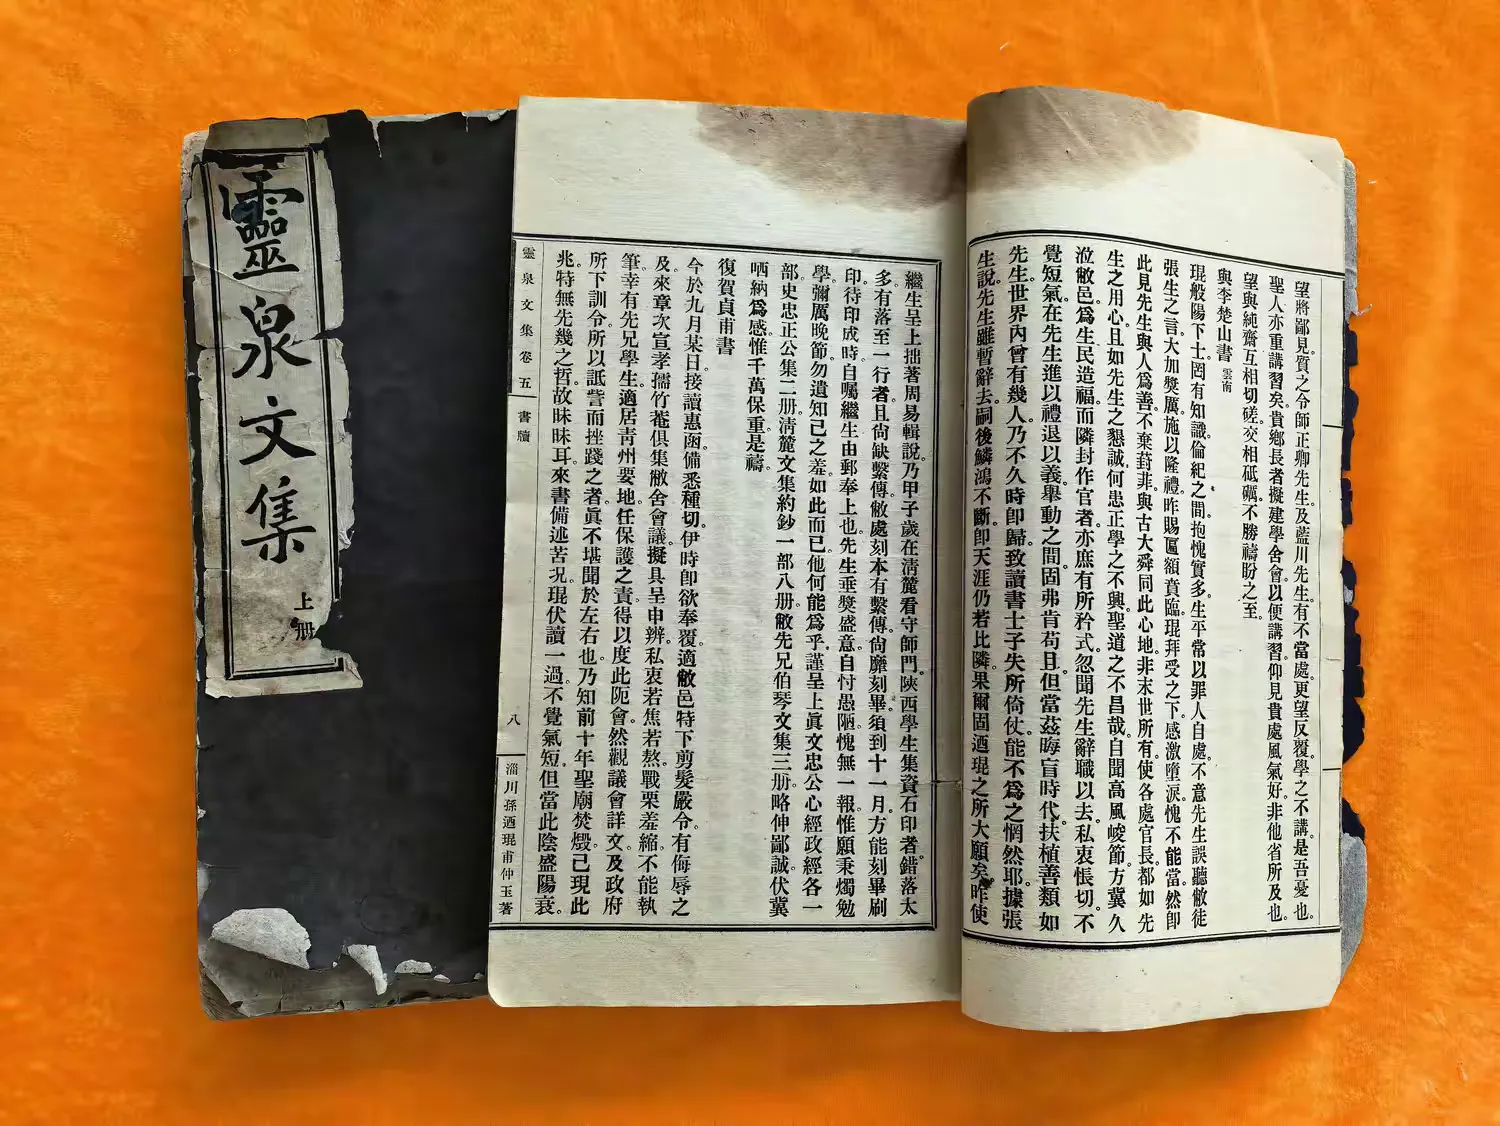 靈泉文集
上册
望將鄙見質之令師正卿先生及藍川先生有不當處更望反覆學之不講是吾憂也
聖人亦重講習矣貴鄉長者擬建學舍會以便講習仰見貴處風氣好非他省所及也
望與純齋互相切磋交相砥礪不勝禱盼之至
與李楚山書 雲南
琨般陽下士罔有知識倫紀之間抱愧實多生平常以罪人自處不意先生誤聽敝徒
張生之言大加獎厲施以隆禮昨賜匾額賁臨琨拜受之下感激墮淚愧不能當然即
此見先生與人為善不棄葑菲與古大舜同此心地非末世所有使各處官長都如先
生之用心且如先生之懇誠何患正學之不興聖道之不昌哉自聞高風峻節方冀久
涖敝邑爲生民造福而隣封作官者亦庶有所矜式忽聞先生辭職以去私衷悵切不
覺短氣在先生進以禮退以義舉動之間固弗肯苟且但當茲晦盲時代扶植善類如
先生世界內曾有幾人乃不久時卽歸致讀書士子失所倚仗能不爲之惘然耶據張
生說先生雖暫辭去嗣後鱗鴻不斷卽天涯仍若比隣果爾固迺琨之所大願矣昨使
繼生呈上拙著周易輯說乃甲子歲在淸麓看守師門陝西學生集資石印者錯落太
多有落至一行者且尙缺繫傳敝處刻本有繫傳尙靡刻畢須到十一月方能刻畢刷
印待印成時自囑繼生由郵奉上也先生垂獎盛意自忖愚陋愧無一報惟願秉燭勉
學彌厲晚節勿遺知己之羞如此而已他何能爲乎謹呈上眞文忠公心經政經各一
部史忠正公集二册淸麓文集約鈔一部八册敝先兄伯琴文集三册略伸鄙誠伏冀
哂納爲感惟千萬保重是禱
復賀貞甫書
今於九月某日接讀惠函備悉種切伊時卽欲奉覆適敝邑特下剪髮嚴令有侮辱之
及來章次宣孝孺竹菴俱集敝舍會議擬具呈申辨私衷若焦若熬戰栗羞縮不能執
筆幸有先兄學生適居靑州要地任保護之責得以度此阨會然觀議會詳文及政府
所下訓令所以詆訾而挫踐之者眞不堪聞於左右也乃知前十年聖廟焚燬已現此
兆特無先幾之哲故昧昧耳來書備述苦況琨伏讀一過不覺氣短但當此陰盛陽衰
靈泉文集卷五 書牘
八
淄川孫迺琨甫仲玉著